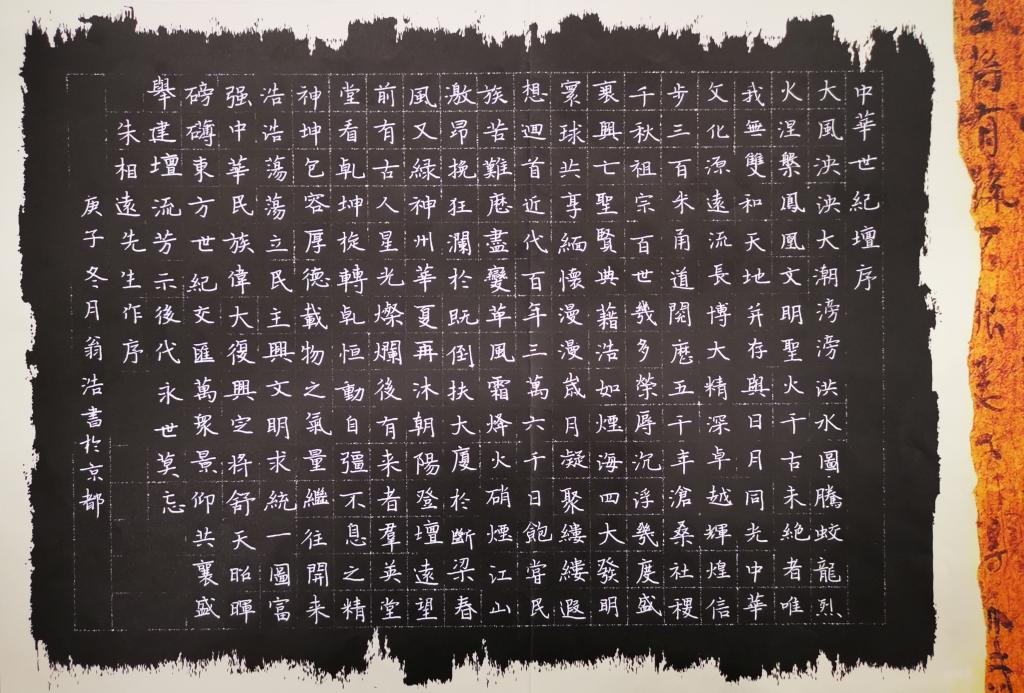 中華世紀壇序
大風泱泱大潮滂滂洪水圖騰蛟龍烈
火涅槃鳳凰文明聖火千古未絕者唯
我無雙和天地并存與日月同光中華
文化源遠流長博大精深卓越輝煌信
步三百米甬道閱歷五千年滄桑社稷
千秋祖宗百世幾多榮辱沉浮幾度盛
衰興亡聖賢典藉浩如煙海四大發明
寰球共享緬懷漫漫歲月凝聚縷縷遐
想迴首近代百年三萬六千日飽嘗民
族苦難歷盡變革風霜烽火硝煙江山
激昂挽狂瀾於既倒扶大廈於斷梁春
風又綠神州華夏再沐朝陽登壇遠望
前有古人星光燦爛後有来者羣英堂
堂看乾坤旋轉乾恒動自彊不息之精
神坤包容厚德載物之氣量繼往開来
浩浩蕩蕩立民主興文明求統一圖富
强中華民族偉大復興定將舒天昭暉
磅礴東方世紀交匯萬衆景仰共襄盛
舉建壇流芳示後代永世莫忘
朱相遠先生作序
庚子冬月翁浩書於京都